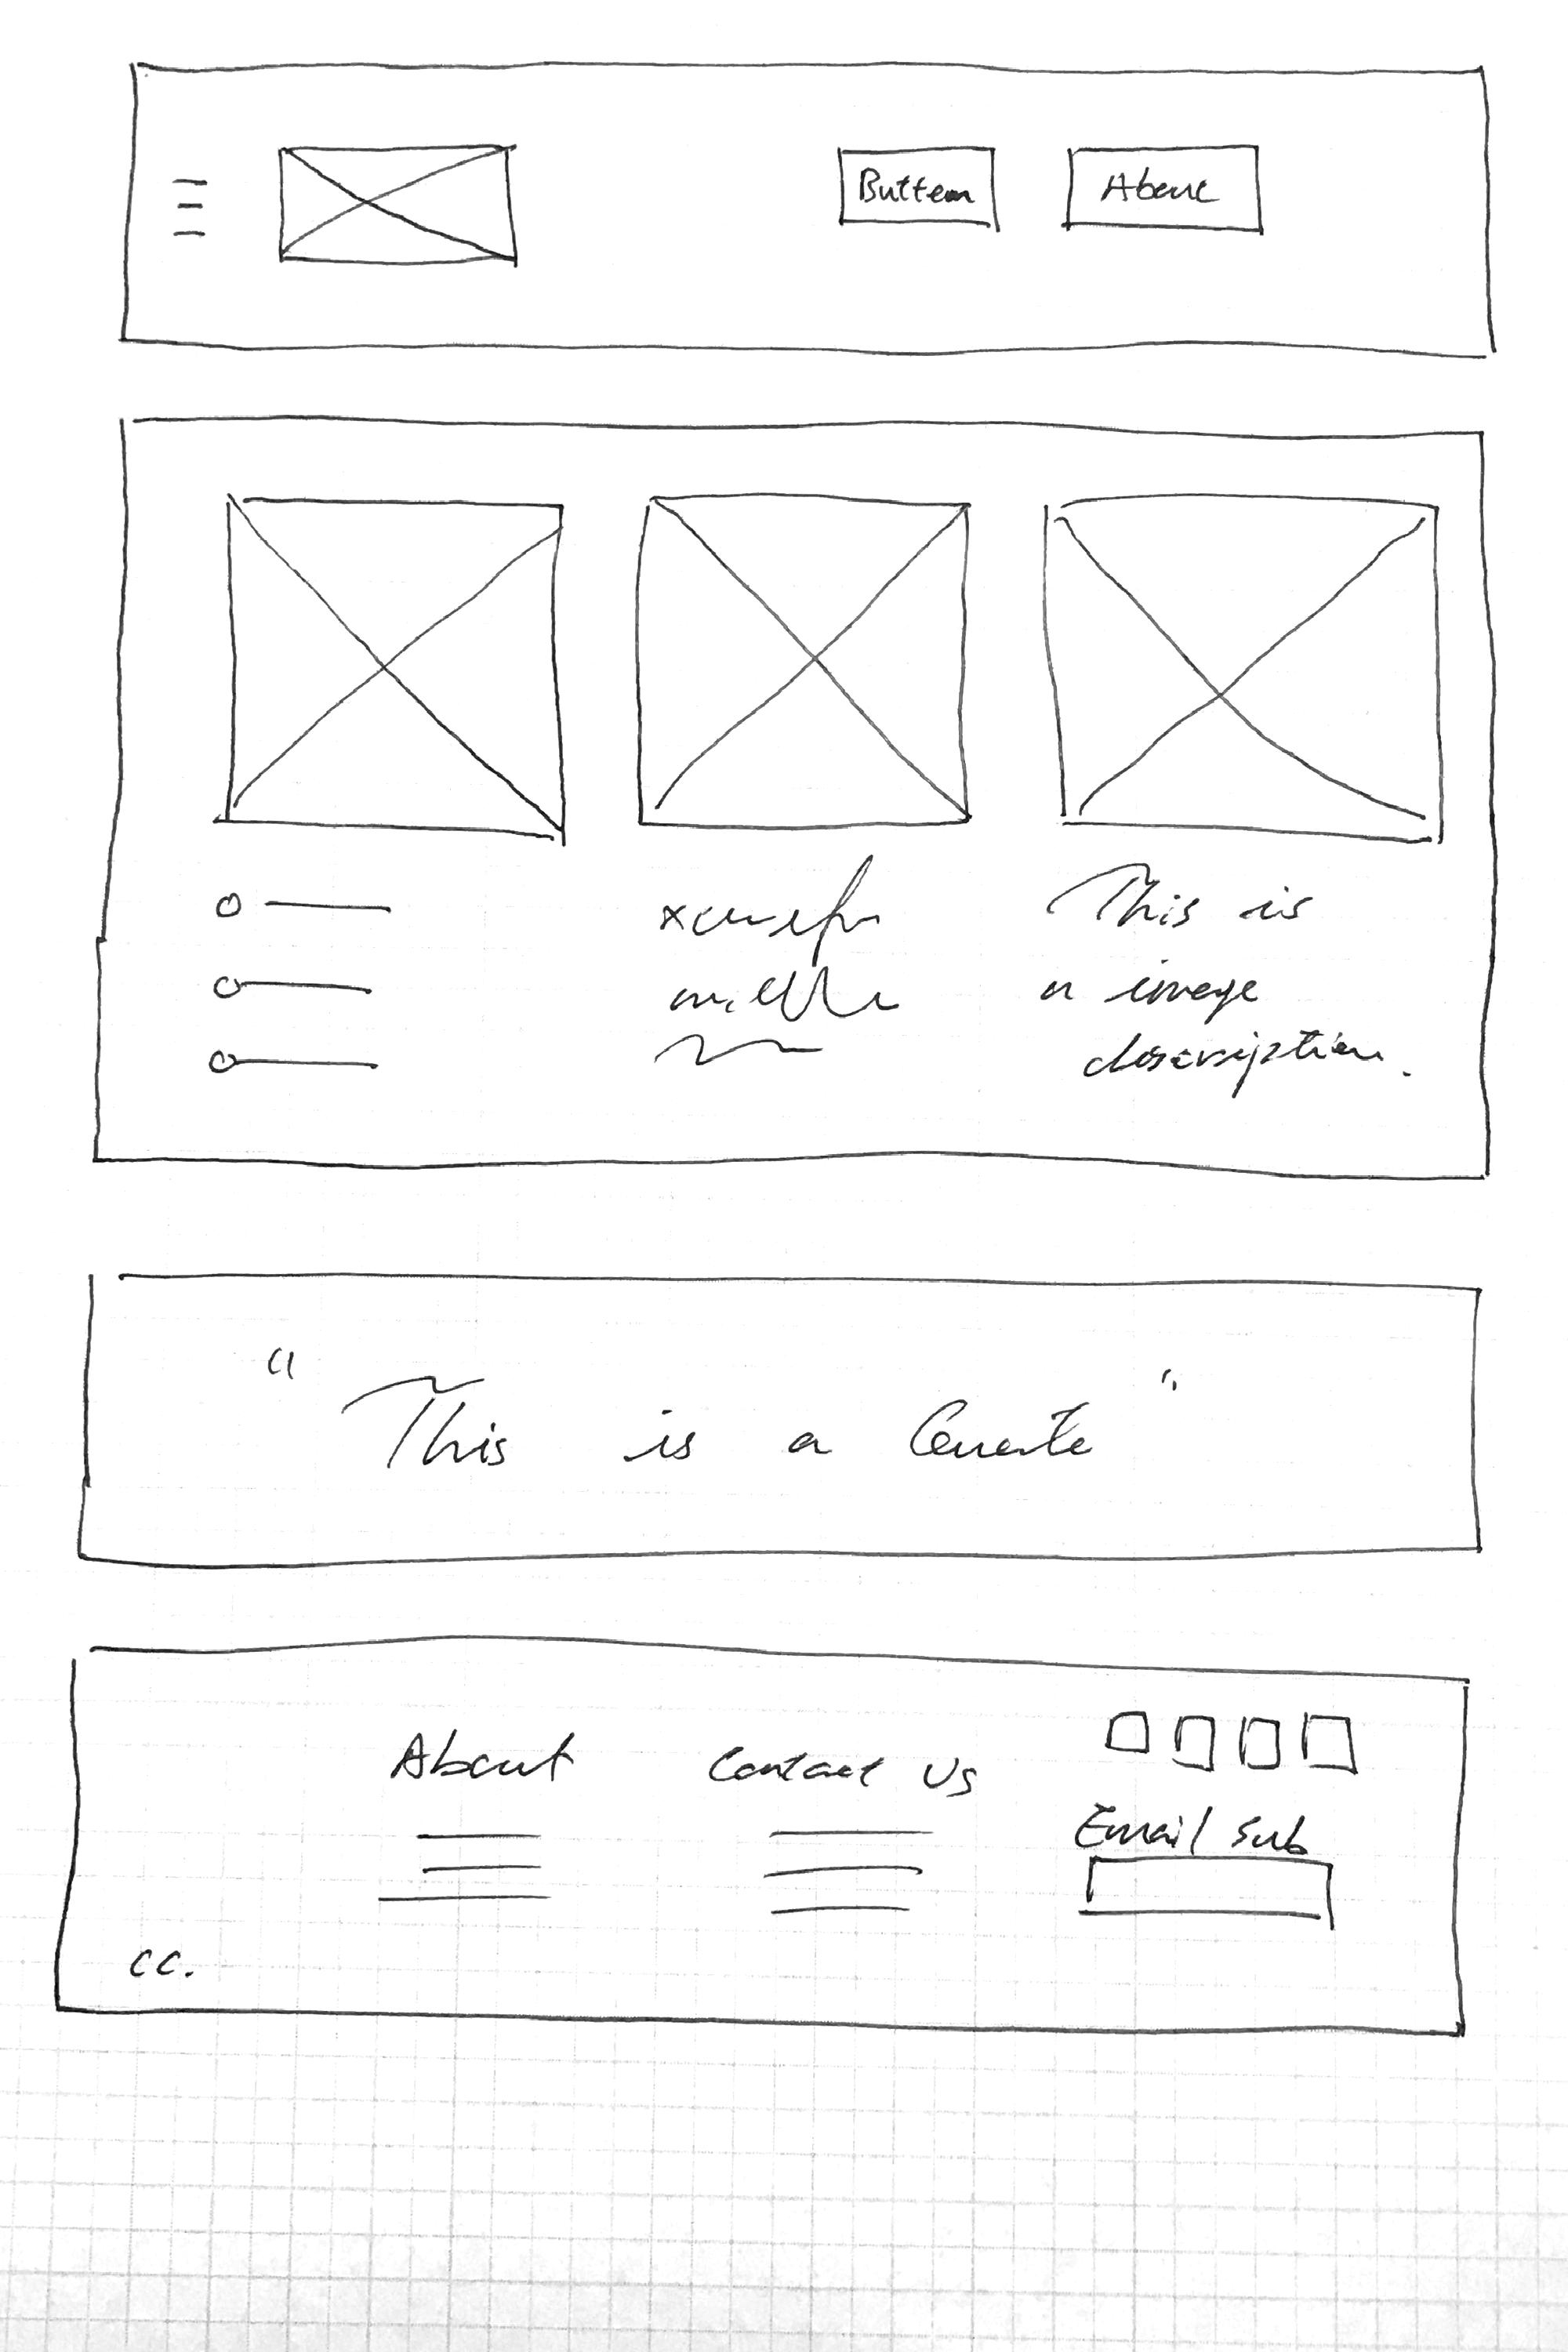 Button
About
This is
a image
description.
“ This is a Quote ”
About
Contact Us
Email Sub
cc.